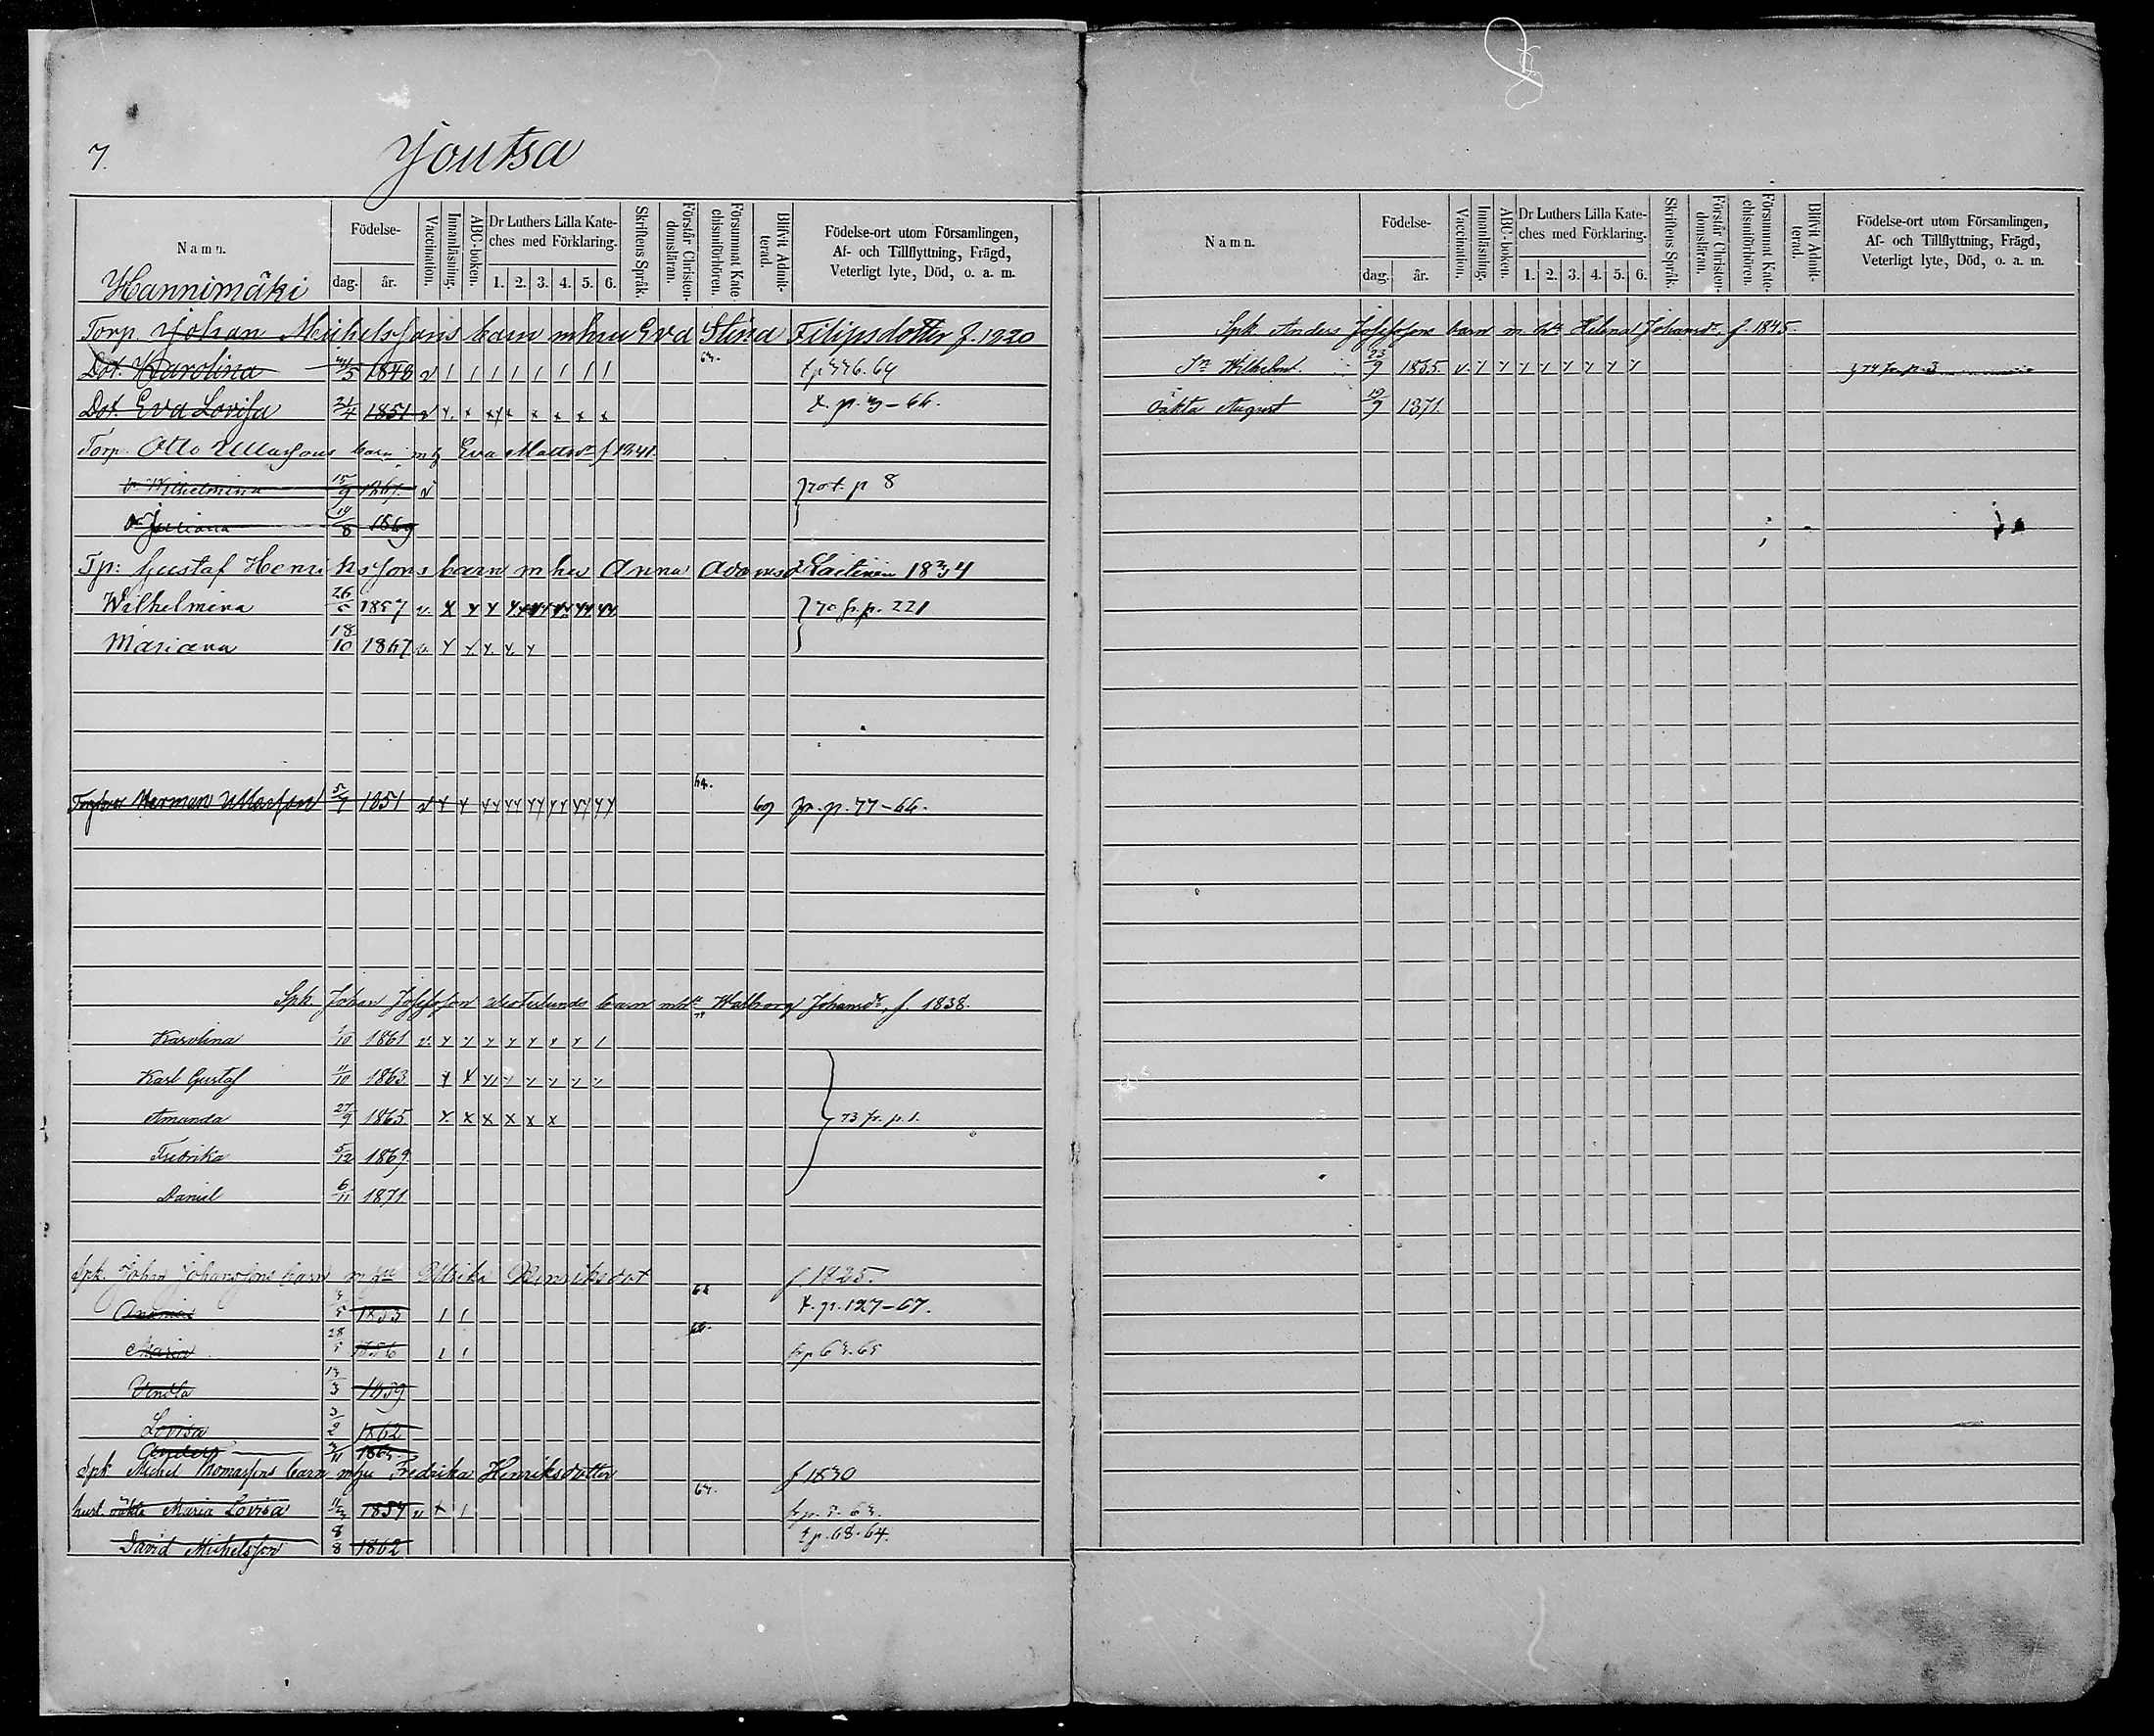 7.
Joutsa
Namn. Födelse- dag. år. Vaccination. Innanläsning. ABC-boken. Dr Luthers Lilla Kateches med Förklaring. 1. 2. 3. 4. 5. 6. Skriftens Språk. Förstår Christendomsläran. Försummat Katechismiförhören. Blifvit Admitterad. Födelse-ort utom Församlingen, Af- och Tillflyttning, Frägd, Veterligt lyte, Död, o. a. m.
Hannimäki
Torp. Johan Michelssons barn m hu Eva Stina Filipsdotter f. 1820
Dot. Karolina 5 1848 v / / / / / / / /
Dot. Eva Lovisa 21/4 1851 v x x x x x x x x t. p. – 66.
Torp. Otto barn m h Eva Mattsdr f 1841
Dr Wilhelmina 15/9 v 70 t. p 8
Dr Juliana 19/8 1869
Tp: Gustaf Henrikssons barn m hu Anna Adamsd Laitinen 1834
Wilhelmina 26/5 1857 v. 70 fr. p. 221
Mariana 18/10 1867 v. x x x x x
Herman 5/7 1851 v 69 fr. p. 77–66.
Spk. Johan Josefsson Westerlunds barn m h Walborg Johansdr, f. 1838.
Karolina 1/10 1861 v. x x x x x x x /
Karl Gustaf 11/10 1863
Amanda 27/9 1865 x x x x x x 73 fr. p. 1.
Fredrika 5/12 1869
Daniel 6/11 1871
Spk. Johan Johanssons barn m hu Ulrika Henriksdot f. 1825.
5 1853 / / t. p. 127–67.
Maria 28 1856 / /
13/3 1859
Lovisa 3/2 1862
Anders 11
Spk. Michel Thomassons barn m hu Fredrika Henriksdotter f 1830
hust. äkta Maria Lovisa 1857 v x /
David Michelsson 8/8 1862 t p. 68. 64.
Namn. Födelse- dag. år. Vaccination. Innanläsning. ABC-boken. Dr Luthers Lilla Kateches med Förklaring. 1. 2. 3. 4. 5. 6. Skriftens Språk. Förstår Christendomsläran. Försummat Katechismiförhören. Blifvit Admitterad. Födelse-ort utom Församlingen, Af- och Tillflyttning, Frägd, Veterligt lyte, Död, o. a. m.
Spk Anders Josefssons barn m h Helena Johansdr. f 1845.
Sn Wilhelm 23/9 1855 v. x x x x x x x x 74 fr. p. 3
oäkta August 19/9 1871.